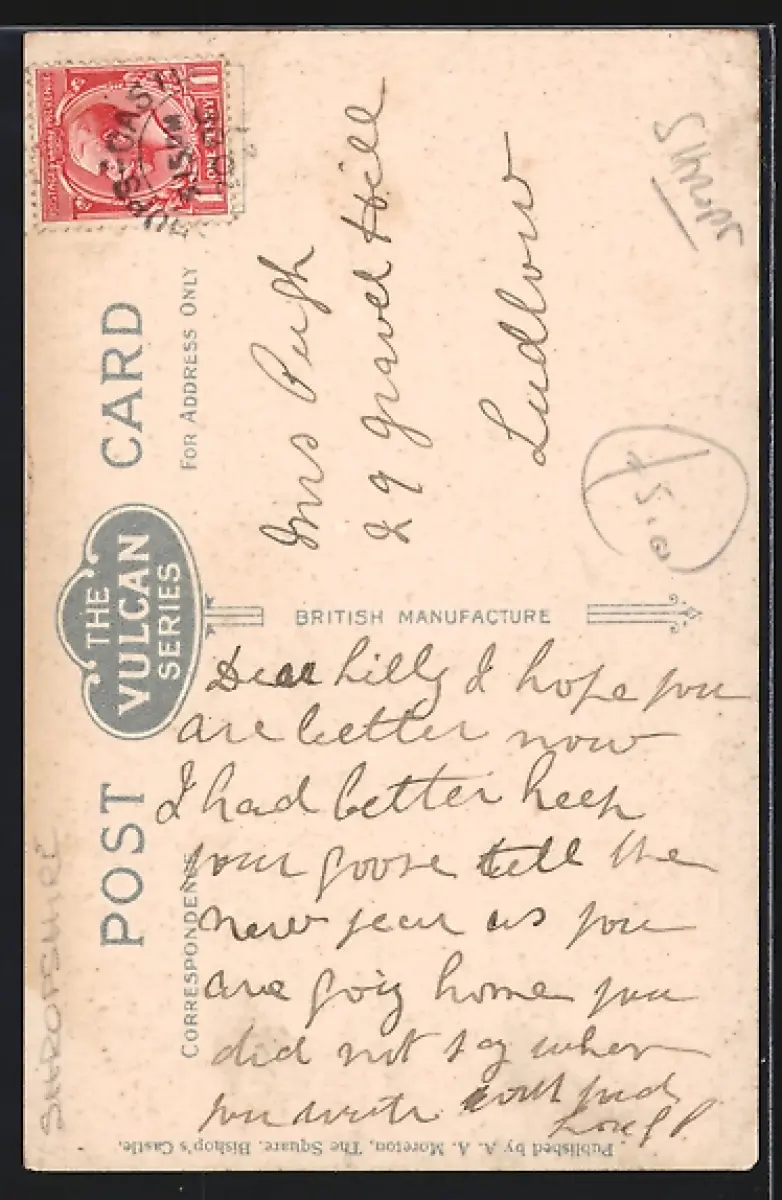 POST CARD
THE
VULCAN
SERIES
FOR ADDRESS ONLY
CORRESPONDENCE
BRITISH MANUFACTURE
ONE PENNY
Mrs Pugh
29 Gravel Hill
Ludlow
Dear Lilly I hope you
are better now
I had better keep
your goose till the
new year as you
are goig home you
did not say when
you write with
Love
£5.00
SHROPSHIRE
Published by A. A. Moreton, The Square, Bishop's Castle.